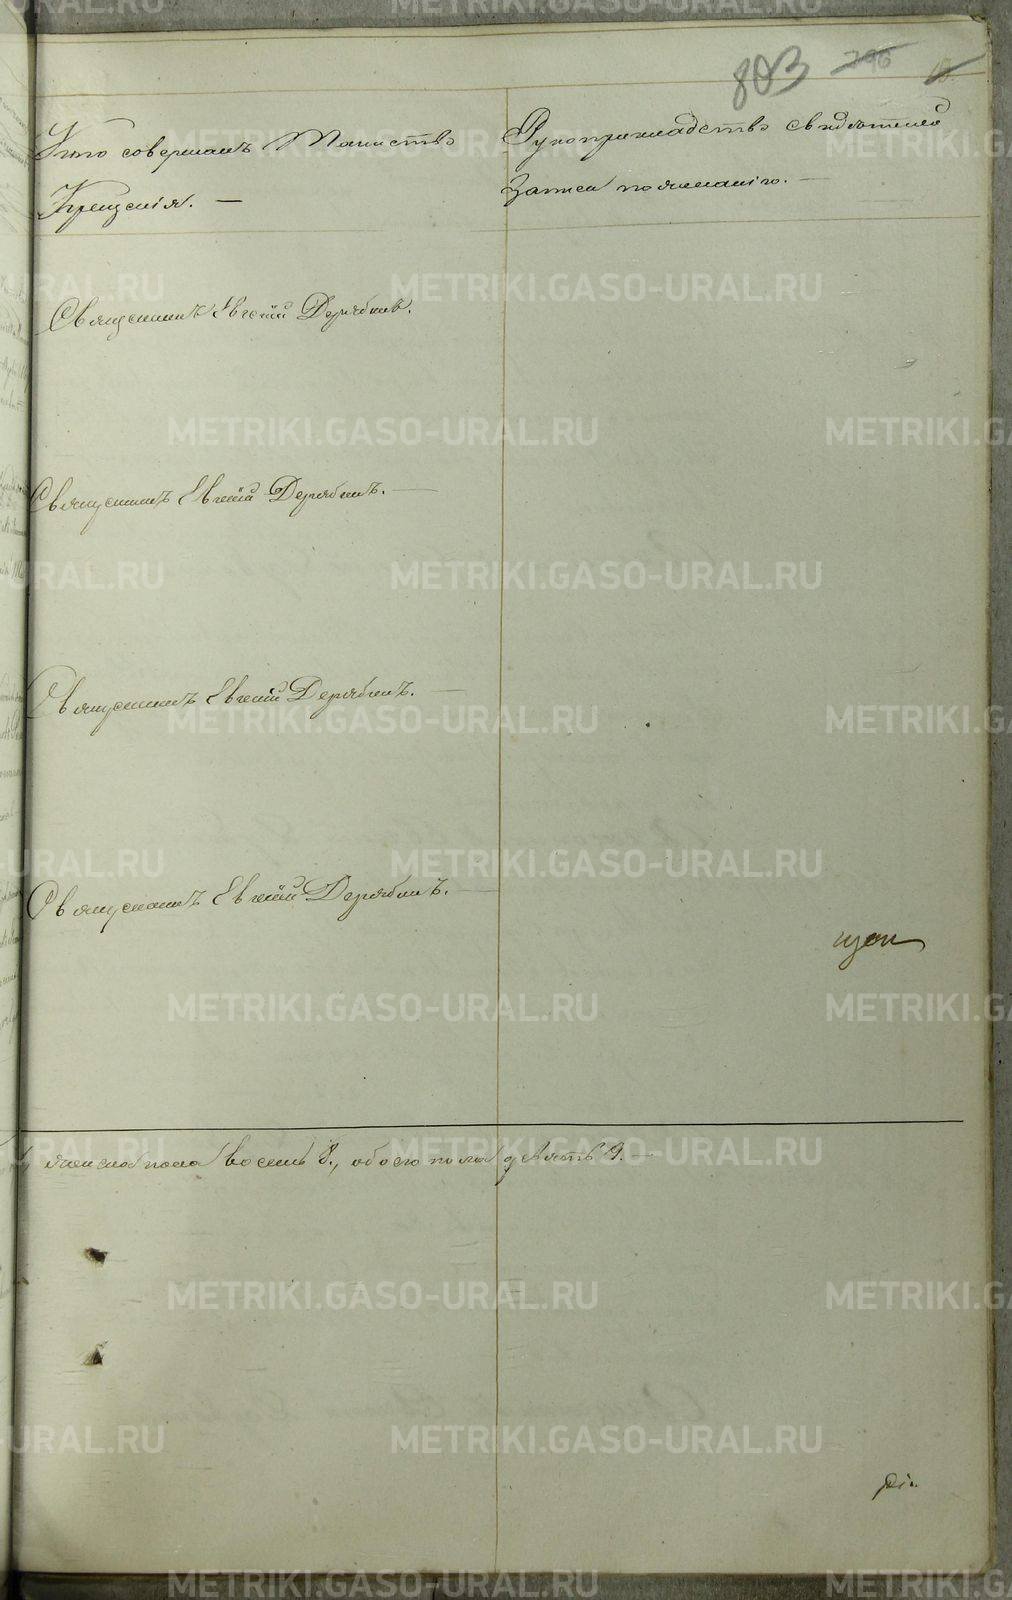 803 796
Кто совершалъ Таинство
Крещенія. —
Рукоприкладство свидѣтелей
записи по желанію. —
Священникъ Евгеній Дерябинъ.
Священникъ Евгеній Дерябинъ. —
Священникъ Евгеній Дерябинъ. —
Священникъ Евгеній Дерябинъ. —
женскаго пола восемь 8., обоего пола девять 9. —
METRIKI.GASO-URAL.RU